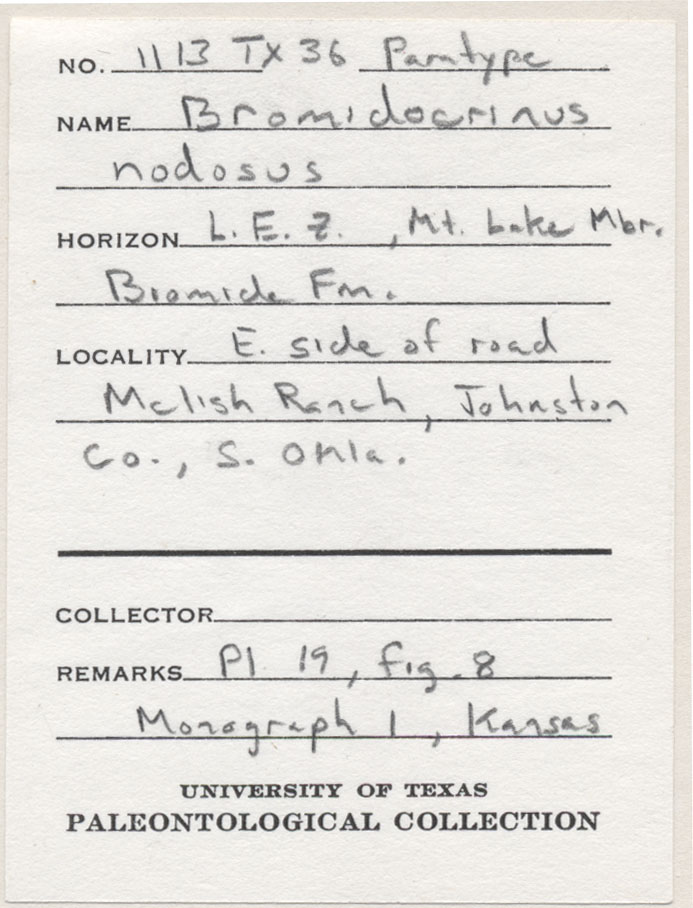 NO. 1113 TX 36 Paratype
NAME Bromidocrinus
nodosus
HORIZON L.E.Z. , Mt. Lake Mbr.
Bromide Fm.
LOCALITY E. side of road
Mclish Ranch, Johnston
Co., S. Okla.
COLLECTOR
REMARKS Pl 19, fig. 8
Monograph 1, Kansas
UNIVERSITY OF TEXAS
PALEONTOLOGICAL COLLECTION